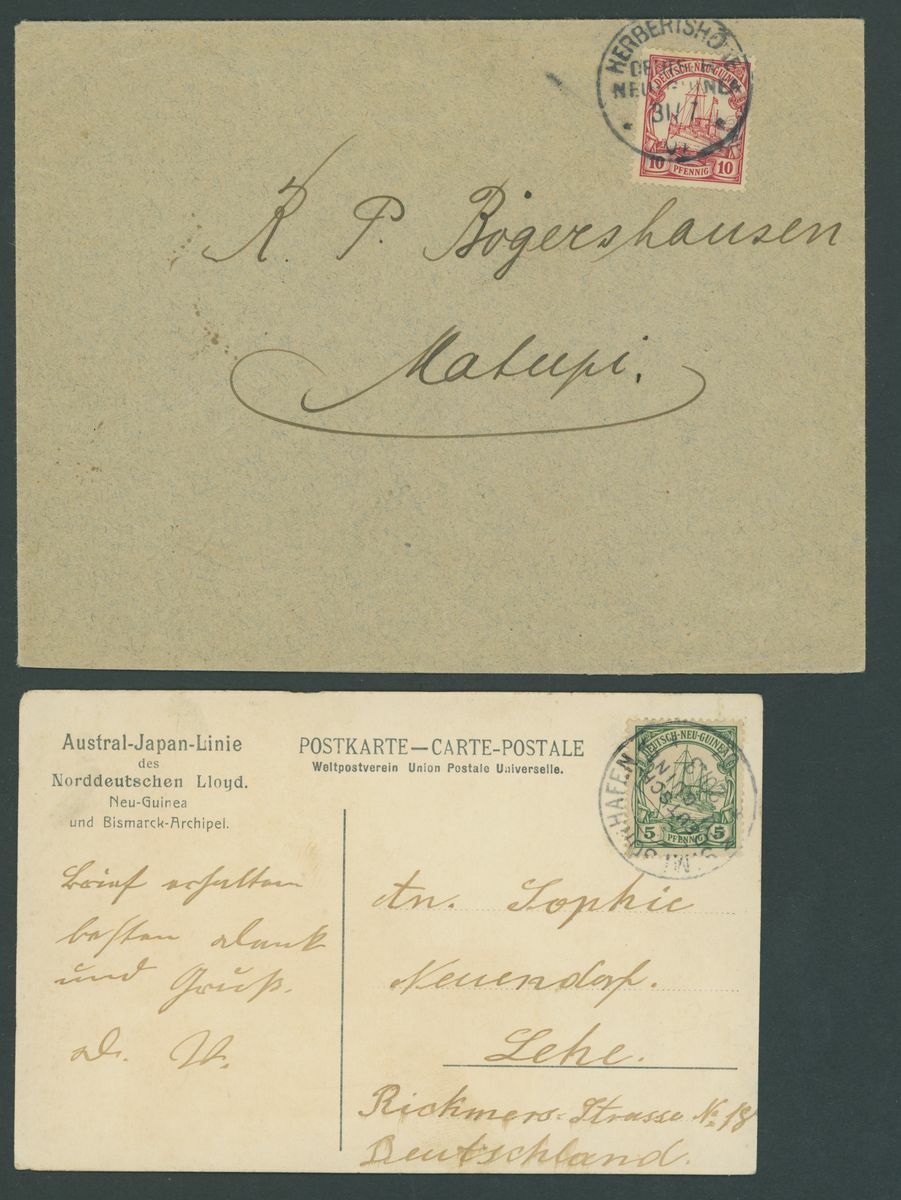 HERBERTSHÖHE
NEU-GUINEA
DEUTSCH-NEU-GUINEA
10 PFENNIG 10
R. P. Bögershausen
Matupi.
Austral-Japan-Linie
des
Norddeutschen Lloyd.
Neu-Guinea
und Bismarck-Archipel.
POSTKARTE—CARTE-POSTALE
Weltpostverein Union Postale Universelle.
DEUTSCH-NEU-GUINEA
5 PFENNIG 5
Brief erhalten
besten Dank
und Gruß.
An. Sophie
Neuendorf.
Lehe.
Rickmers-Strasse No 18
Deutschland.